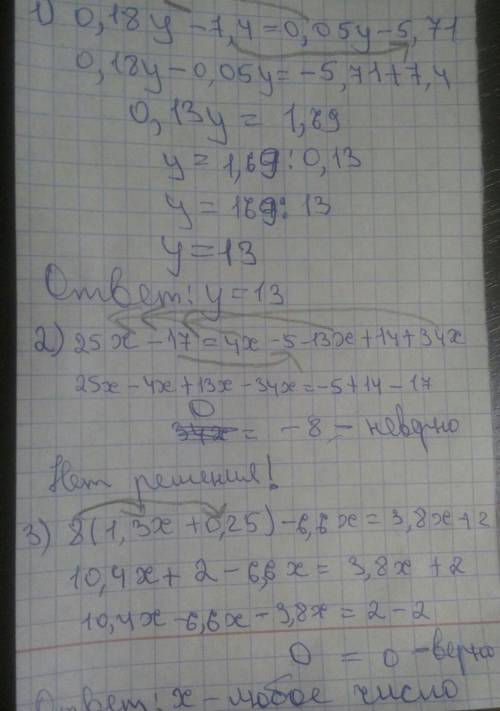 1) 0,18y - 7,4 = 0,05y - 5,71
0,18y - 0,05y = -5,71 + 7,4
0,13y = 1,69
y = 1,69 : 0,13
y = 169 : 13
y = 13
Ответ: y = 13
2) 25x - 17 = 4x - 5 - 13x + 14 + 34x
25x - 4x + 13x - 34x = -5 + 14 - 17
0 = -8 - неверно
Нет решения!
3) 8(1,3x + 0,25) - 6,6x = 3,8x + 2
10,4x + 2 - 6,6x = 3,8x + 2
10,4x - 6,6x - 3,8x = 2 - 2
0 = 0 - верно
Ответ: x - любое число